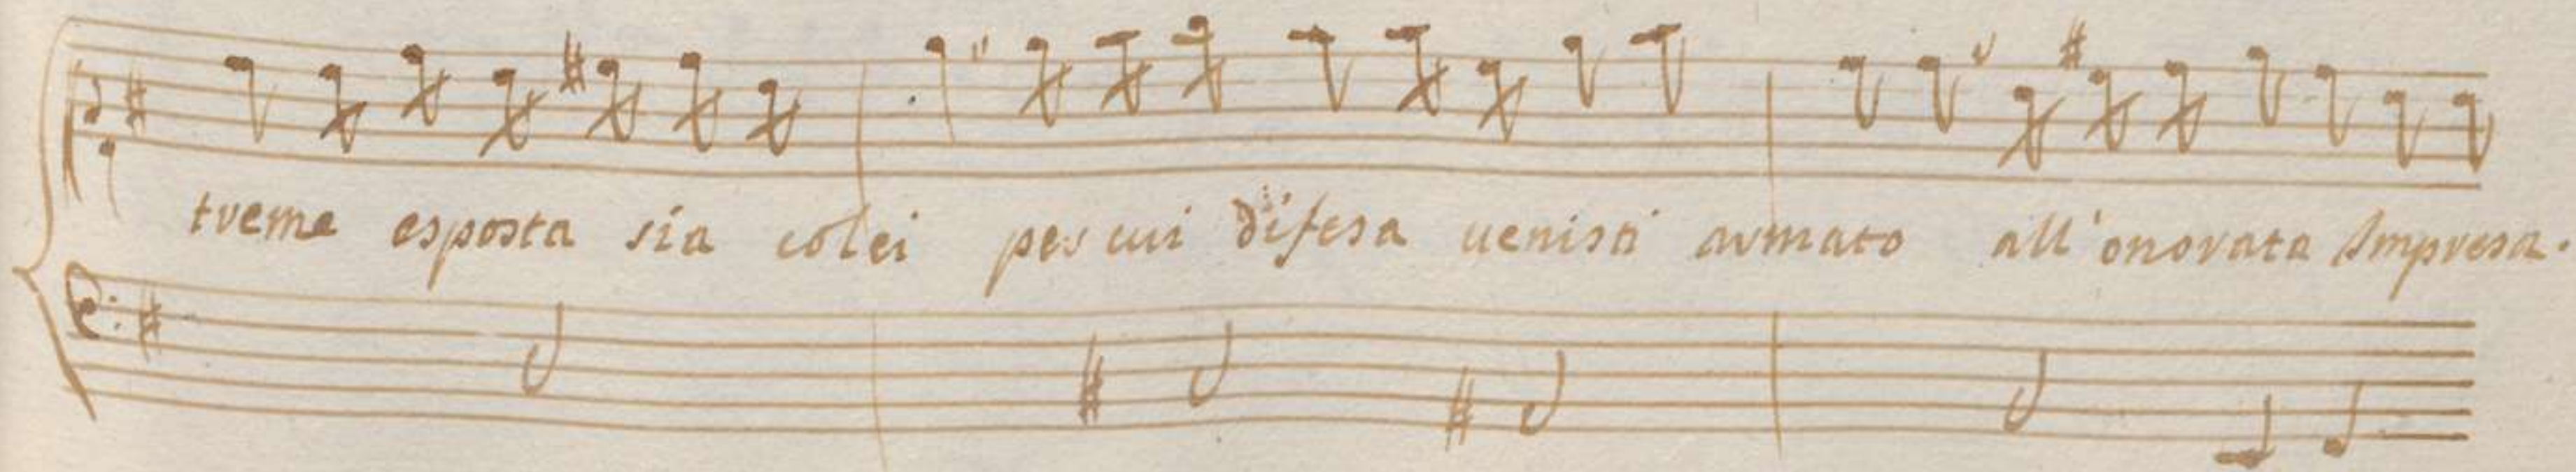 treme esposta sia colei per cui difesa uenisti armato all'onorata Impresa.